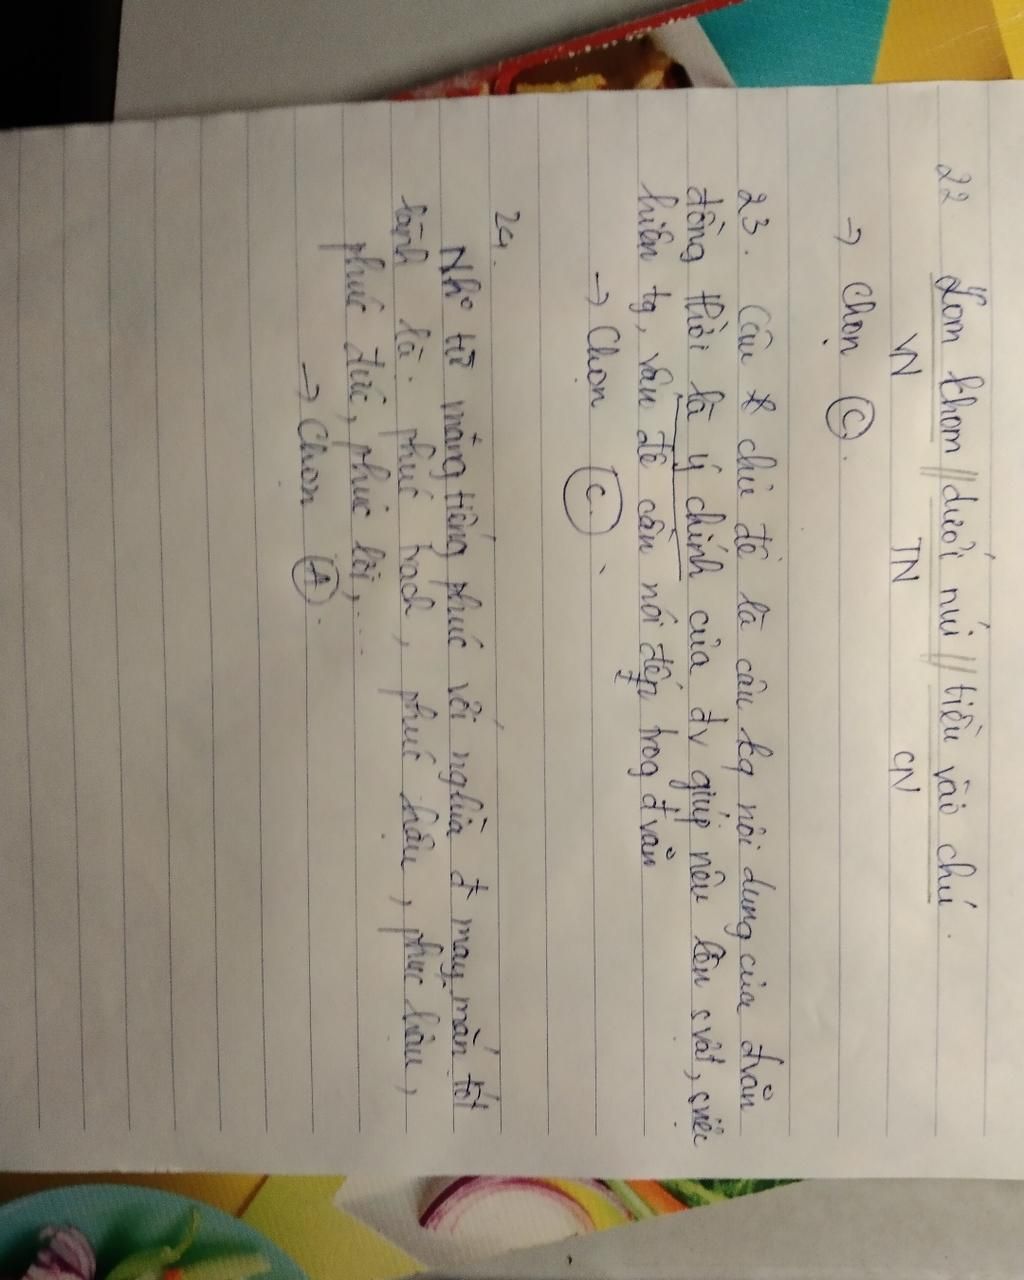 22. Lom khom // dưới núi // tiều vào chú.
VN TN CN
→ Chọn (C).
23. Câu chủ đề là câu kq nôi dung của đvăn
đồng thời là ý chính của đv giúp nêu lên svật, sviêc
hiên tg, vấn đề cần nói đếp trog đvăn
→ Chọn (C.)
24.
Nhơ từ mang tiếng phúc với nghĩa đ may mắn tốt
lành là. phúc trach, phúc hâu, phuc hâu,
phúc đức, phúc lơi,...
→ Chọn (A).